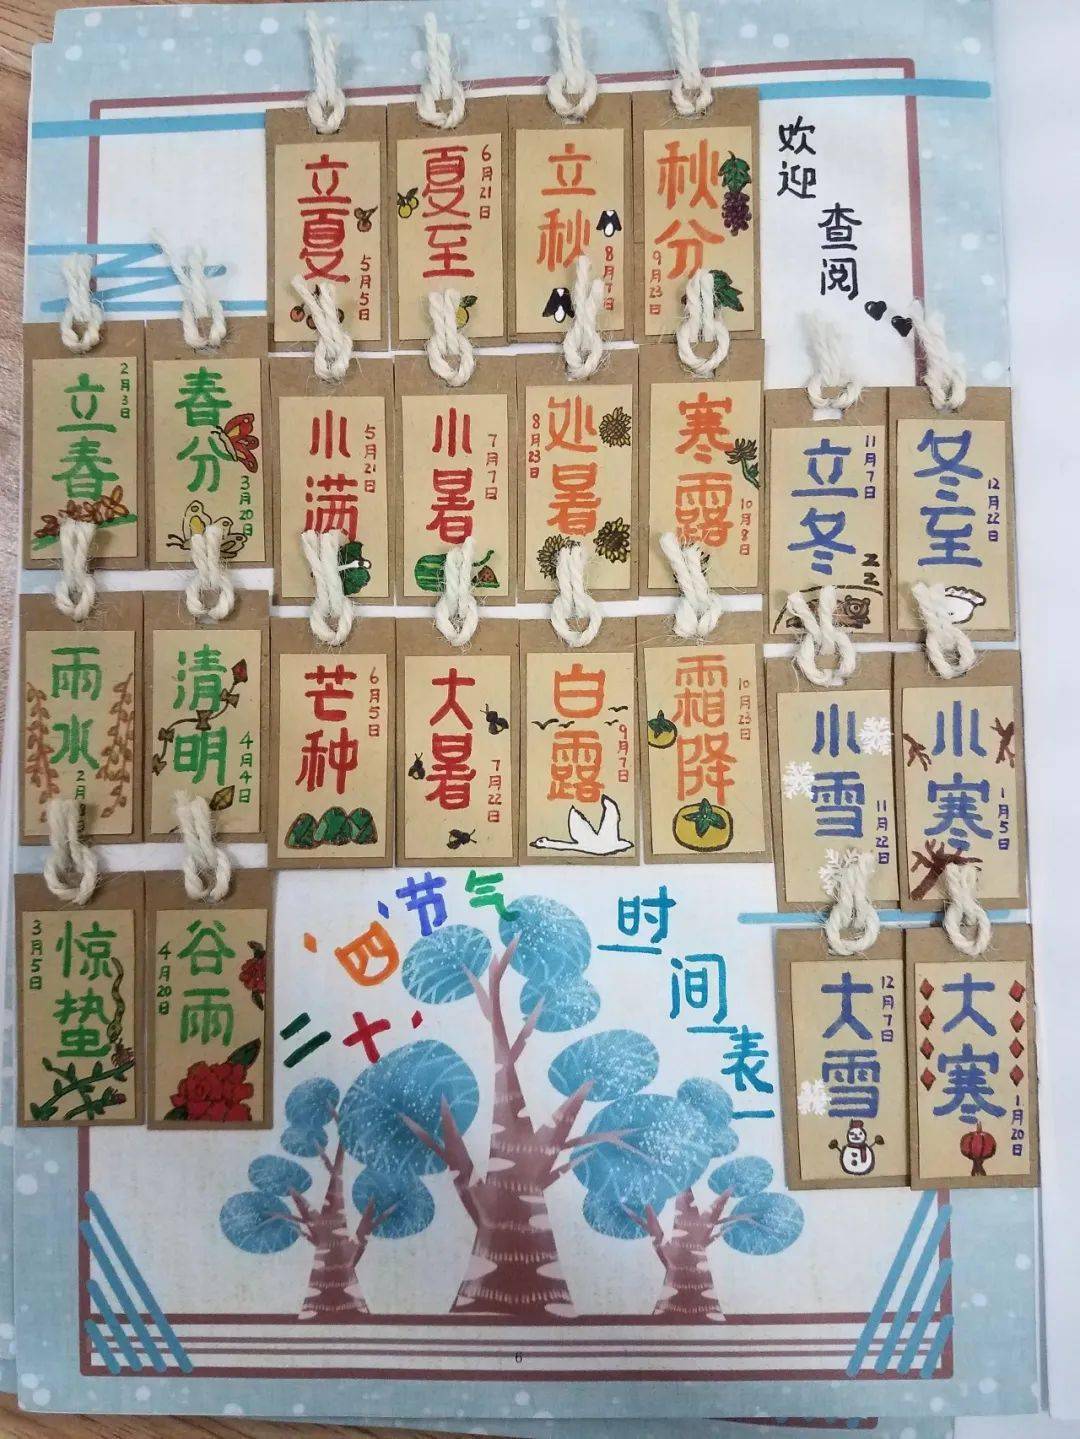 欢迎
查阅
立夏
5月5日
夏至
6月21日
立秋
8月7日
秋分
9月23日
立春
2月3日
春分
3月20日
小满
5月21日
小暑
7月7日
处暑
8月23日
寒露
10月8日
立冬
11月7日
冬至
12月22日
雨水
2月
清明
4月4日
芒种
6月5日
大暑
7月22日
白露
9月7日
霜降
10月23日
小雪
11月22日
小寒
1月5日
惊蛰
3月5日
谷雨
4月20日
大雪
12月7日
大寒
1月20日
二十四节气
时间表
6